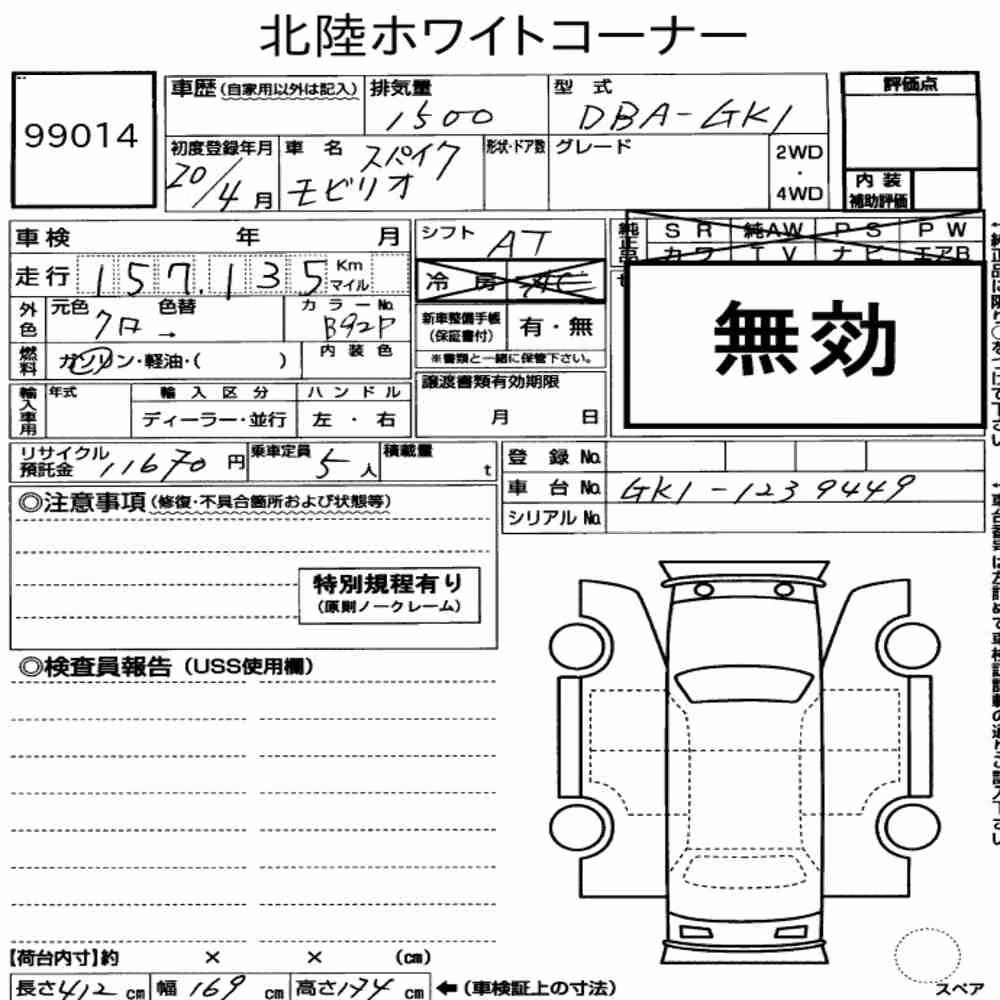 北陸ホワイトコーナー
99014
車歴 (自家用以外は記入)
排気量 1500
型式 DBA-GK1
評価点
初度登録年月 20/4月
車名 スパイク
モビリオ
形状・ドア数
グレード
2WD
・
4WD
内装
補助評価
車検 年 月
シフト AT
純正品
SR 純AW PS PW
カワ TV ナビ エアB
走行 157,135 Km
マイル
冷房 AC
無効
外色
元色 クロ →
色替
カラーNo. B92P
新車整備手帳
(保証書付)
有・無
内装色
※書類と一緒に保管下さい。
燃料 ガソリン・軽油・( )
輸入車用
年式
輸入区分
ディーラー・並行
ハンドル
左・右
譲渡書類有効期限
月 日
リサイクル
預託金 11670 円
乗車定員 5人
積載量 t
登録No.
車台No. GK1-1239449
シリアルNo.
◎注意事項 (修復・不具合箇所および状態等)
特別規程有り
(原則ノークレーム)
◎検査員報告 (USS使用欄)
【荷台内寸】約 × × (cm)
長さ 412 cm 幅 169 cm 高さ 174 cm ←(車検証上の寸法)
スペア